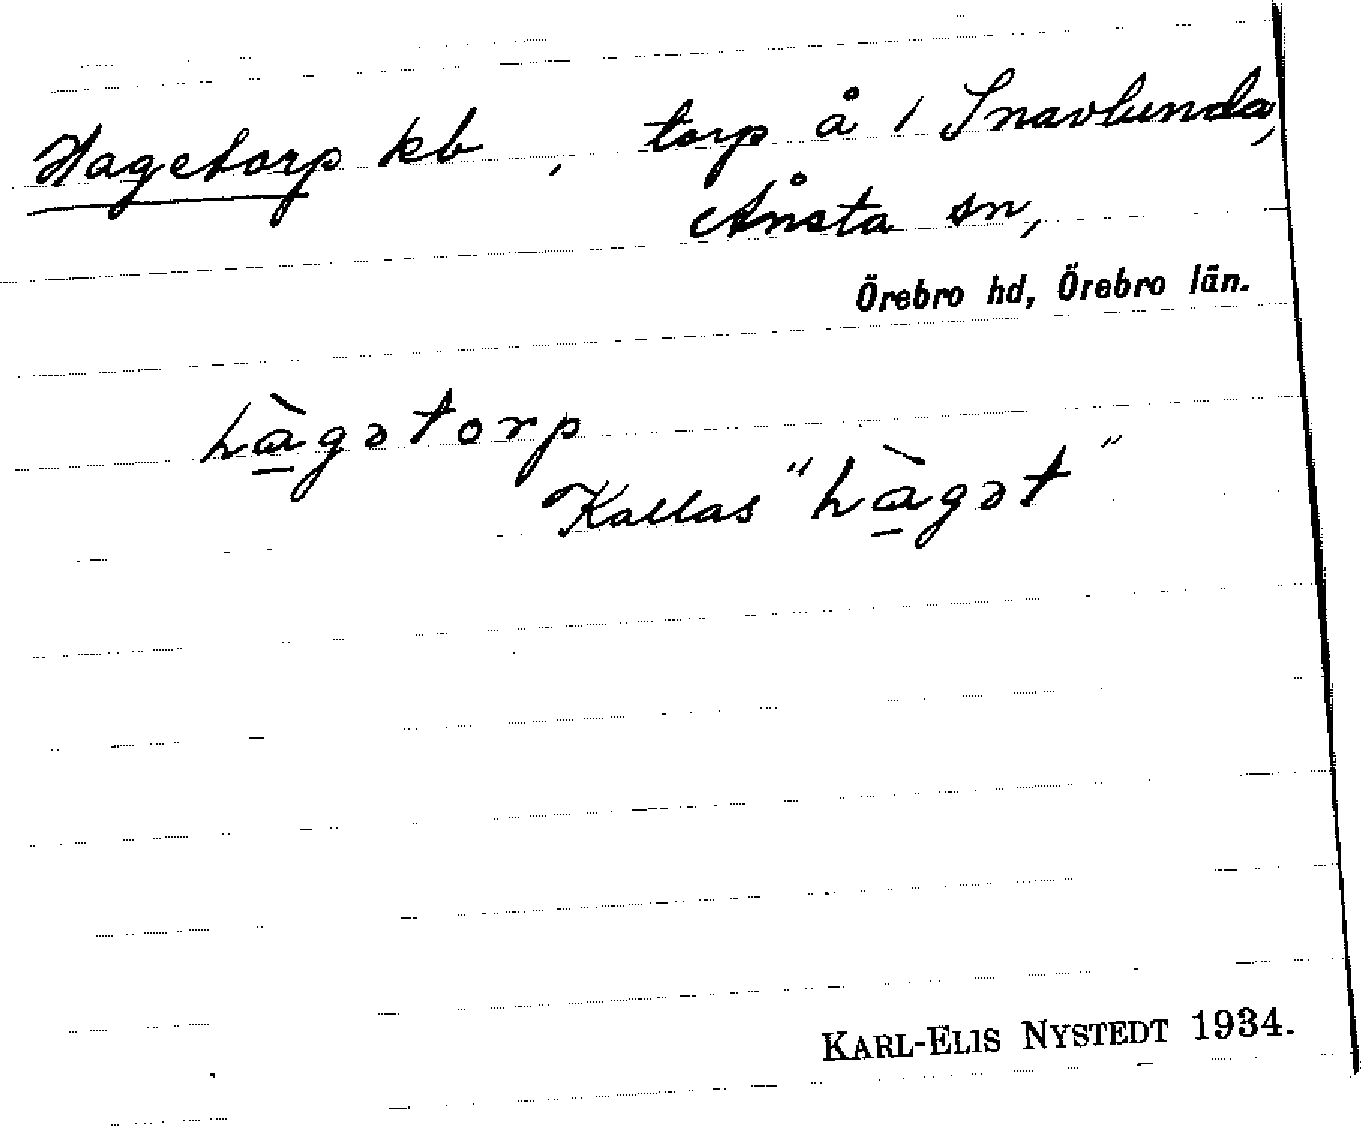 Hagetorp kb , torp å 1 Snavlunda,
Ånsta sn,
Örebro hd, Örebro län.
hàgətorp
Kallas "hàgət"
KARL-ELIS NYSTEDT 1934.